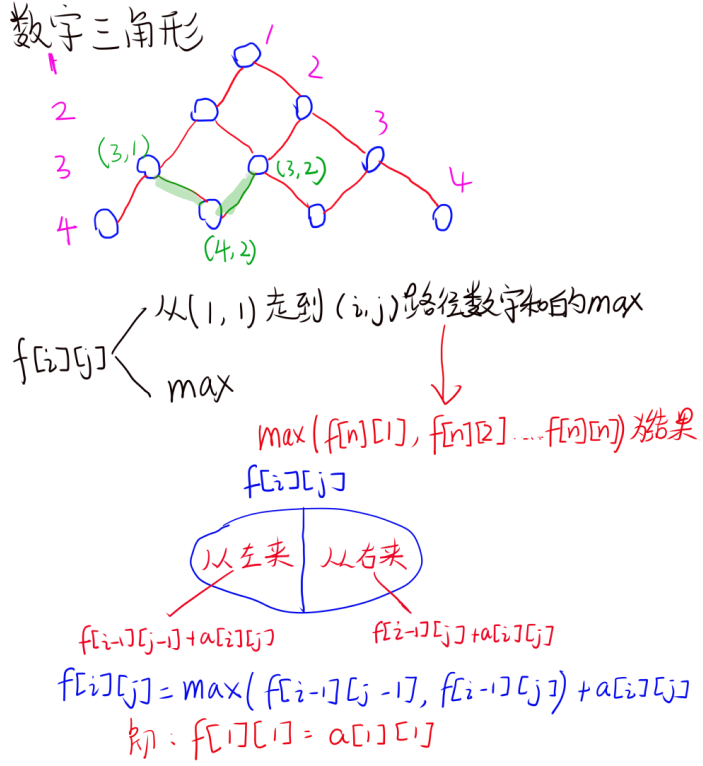 数字三角形
1
1
2
2
3
3
(3,1)
(3,2)
4
4
(4,2)
从(1,1)走到(i,j)路径数字和的max
f[i][j]
max
max(f[n][1],f[n][2]....f[n][n])为结果
f[i][j]
从左来 从右来
f[i-1][j-1]+a[i][j] f[i-1][j]+a[i][j]
f[i][j]=max(f[i-1][j-1],f[i-1][j])+a[i][j]
初:f[1][1]=a[1][1]